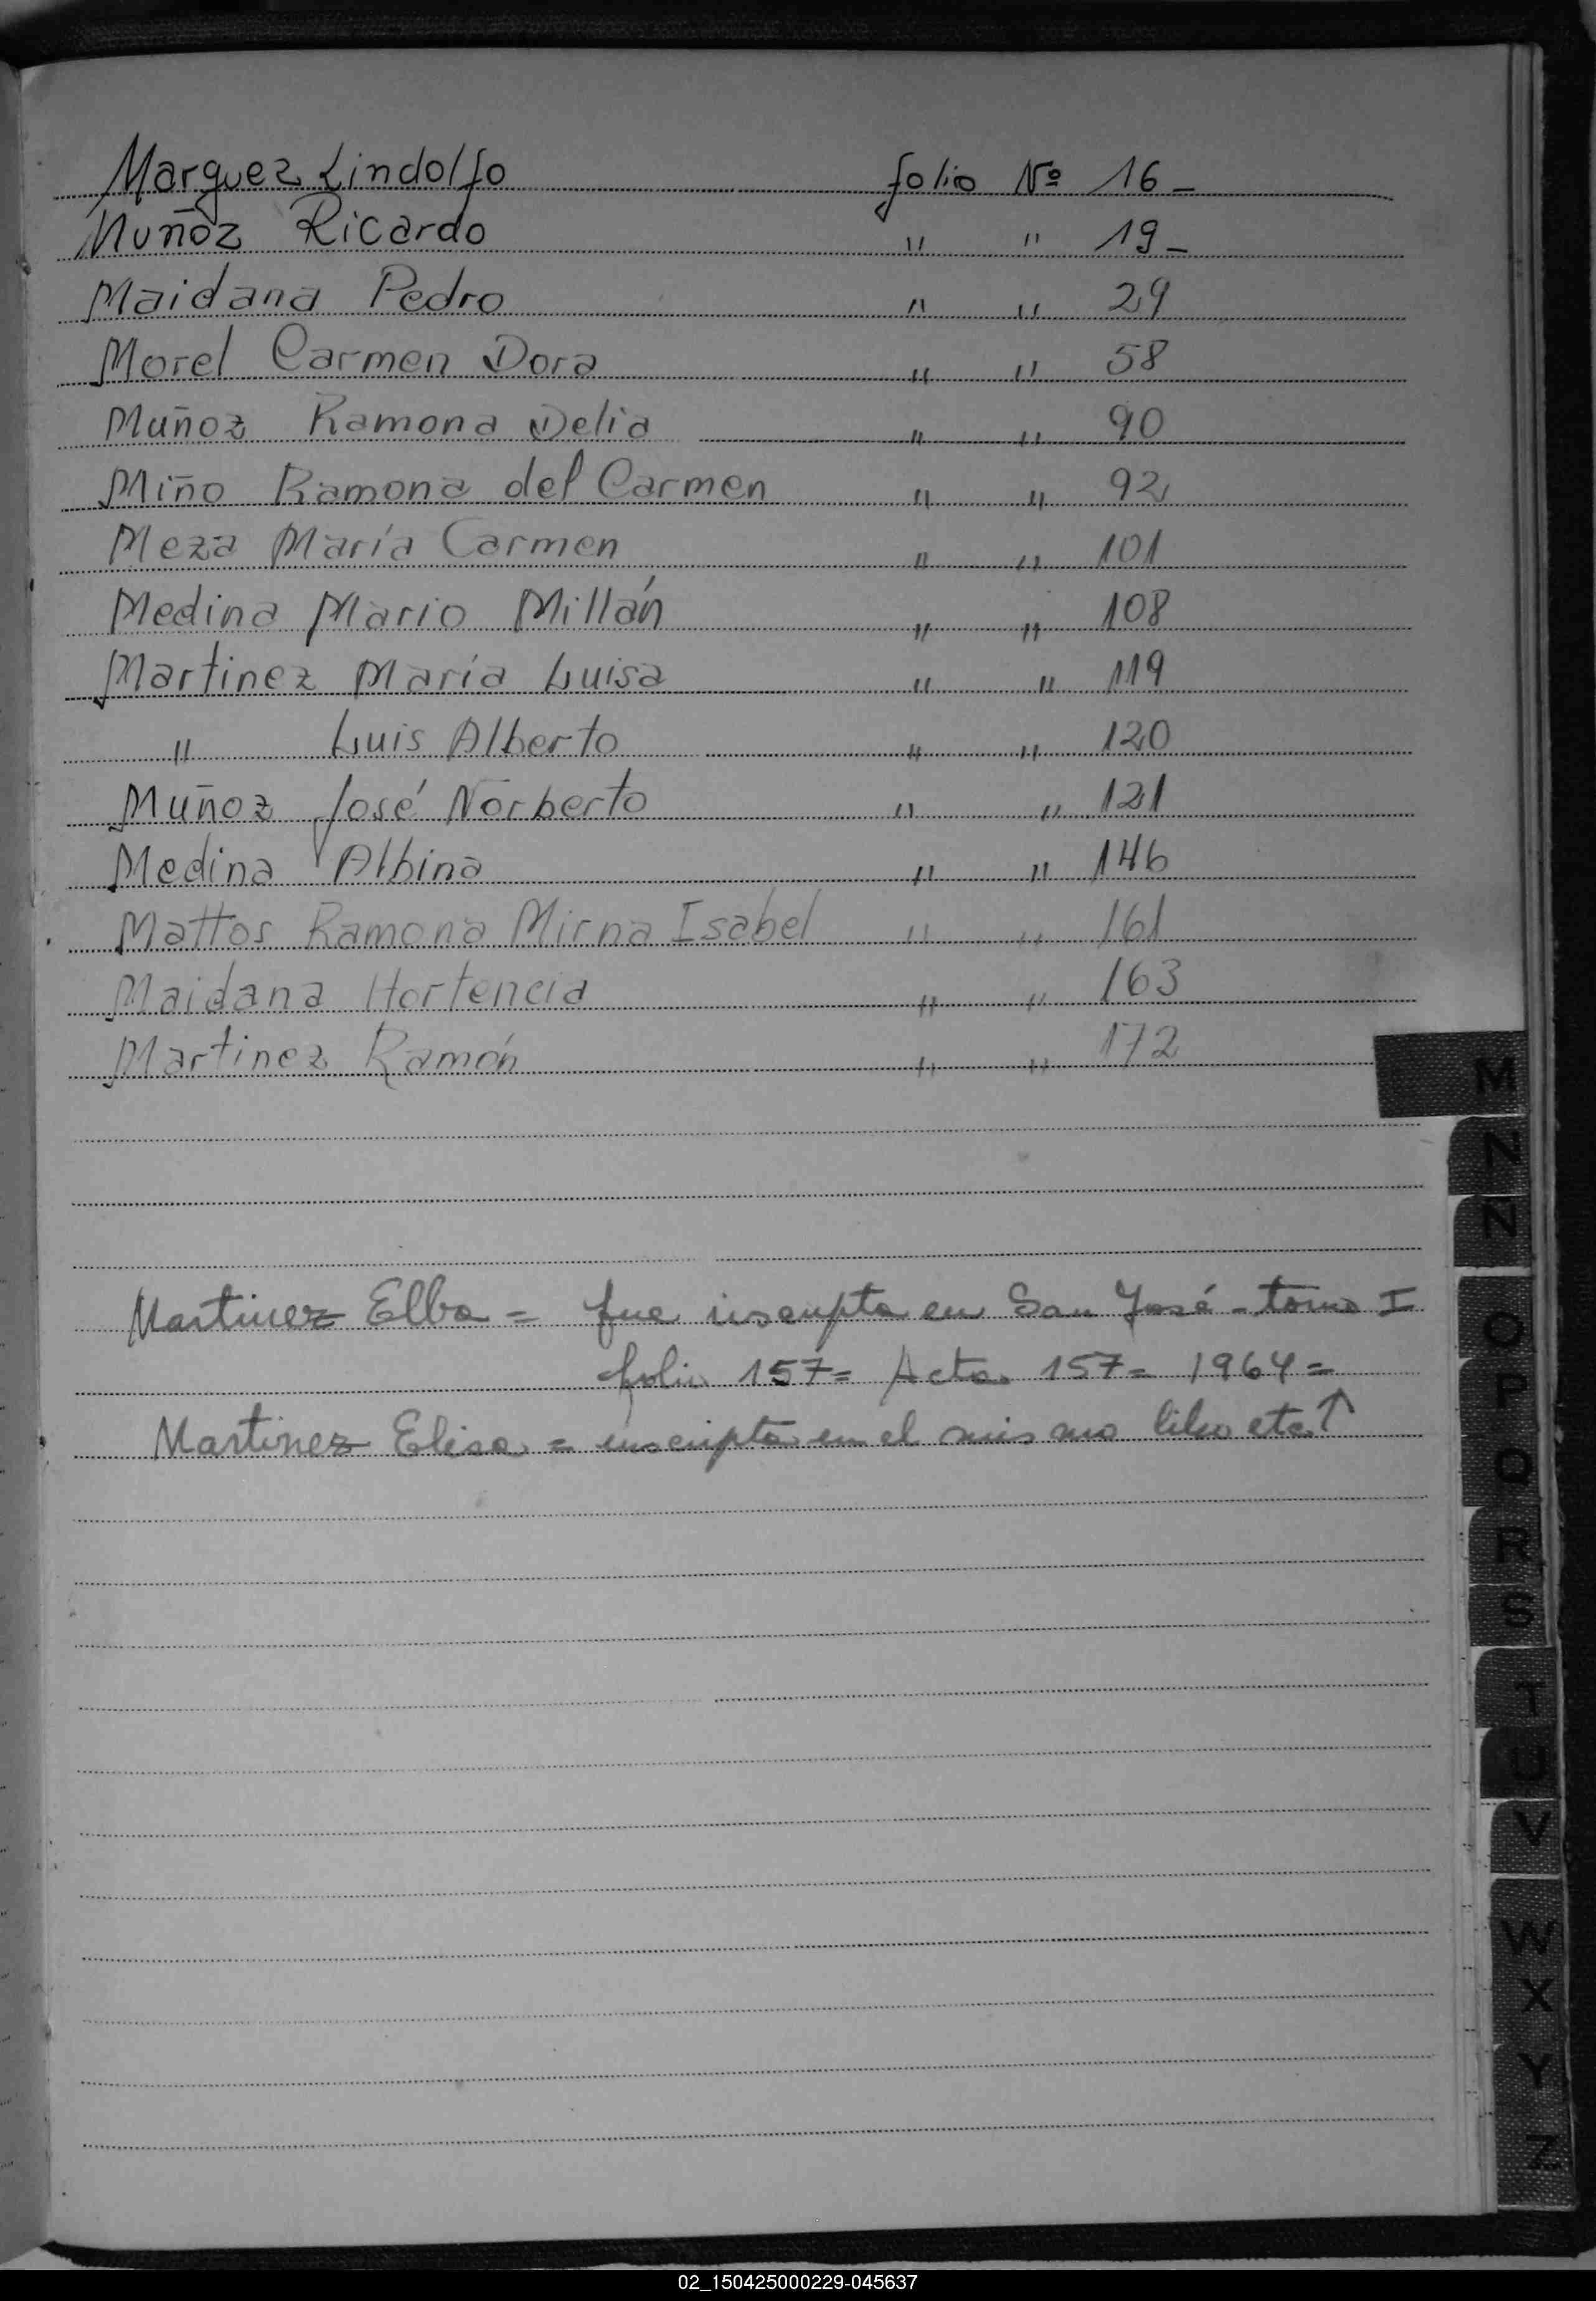 Marquez Lindolfo folio Nº 16 -
Muñoz Ricardo " " 19 -
Maidana Pedro " " 29
Morel Carmen Dora " " 58
Muñoz Ramona Delia " " 90
Miño Ramona del Carmen " " 92
Meza María Carmen " " 101
Medina Mario Millán " " 108
Martinez María Luisa " " 119
" Luis Alberto " " 120
Muñoz José Norberto " " 121
Medina Albina " " 146
Mattos Ramona Mirna Isabel " " 161
Maidana Hortencia " " 163
Martinez Ramón " " 172
Martinez Elba = fue inscripta en San José - tomo I
folio 157 = Acta 157 = 1964 =
Martinez Elisa = inscripta en el mismo libro etc ↑
M
N
Ñ
O
P
Q
R
S
T
U
V
W
X
Y
Z
02_150425000229-045637